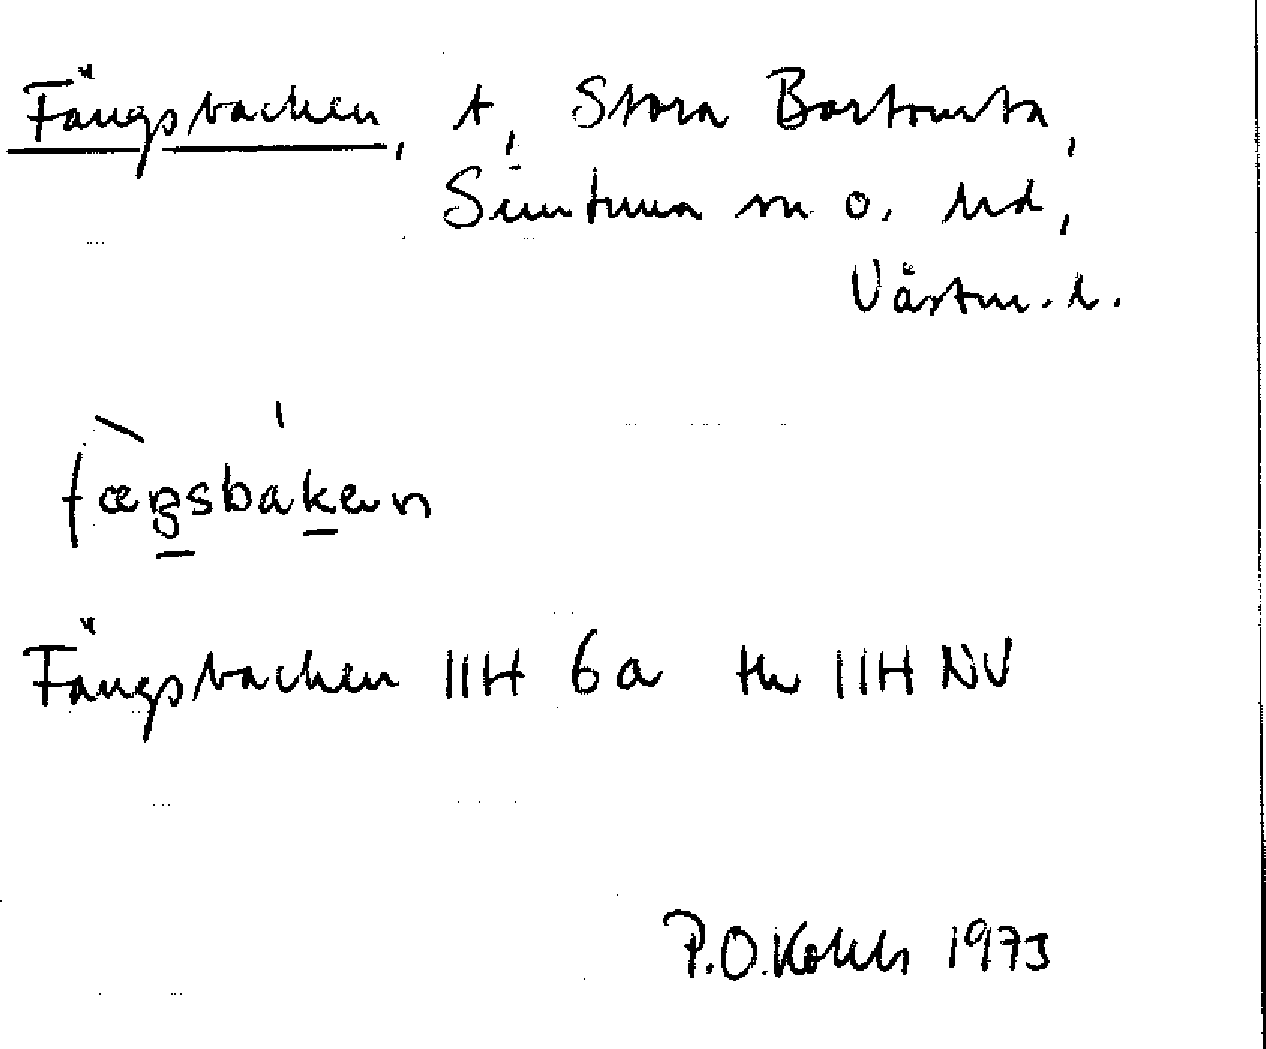 Fängsbacken, t, Stora Bärtomta,
Simtuna sn o. hd,
Västm. l.
fæŋsbakan
Fängsbacken 11H 6a th 11H NV
P.O. 1973